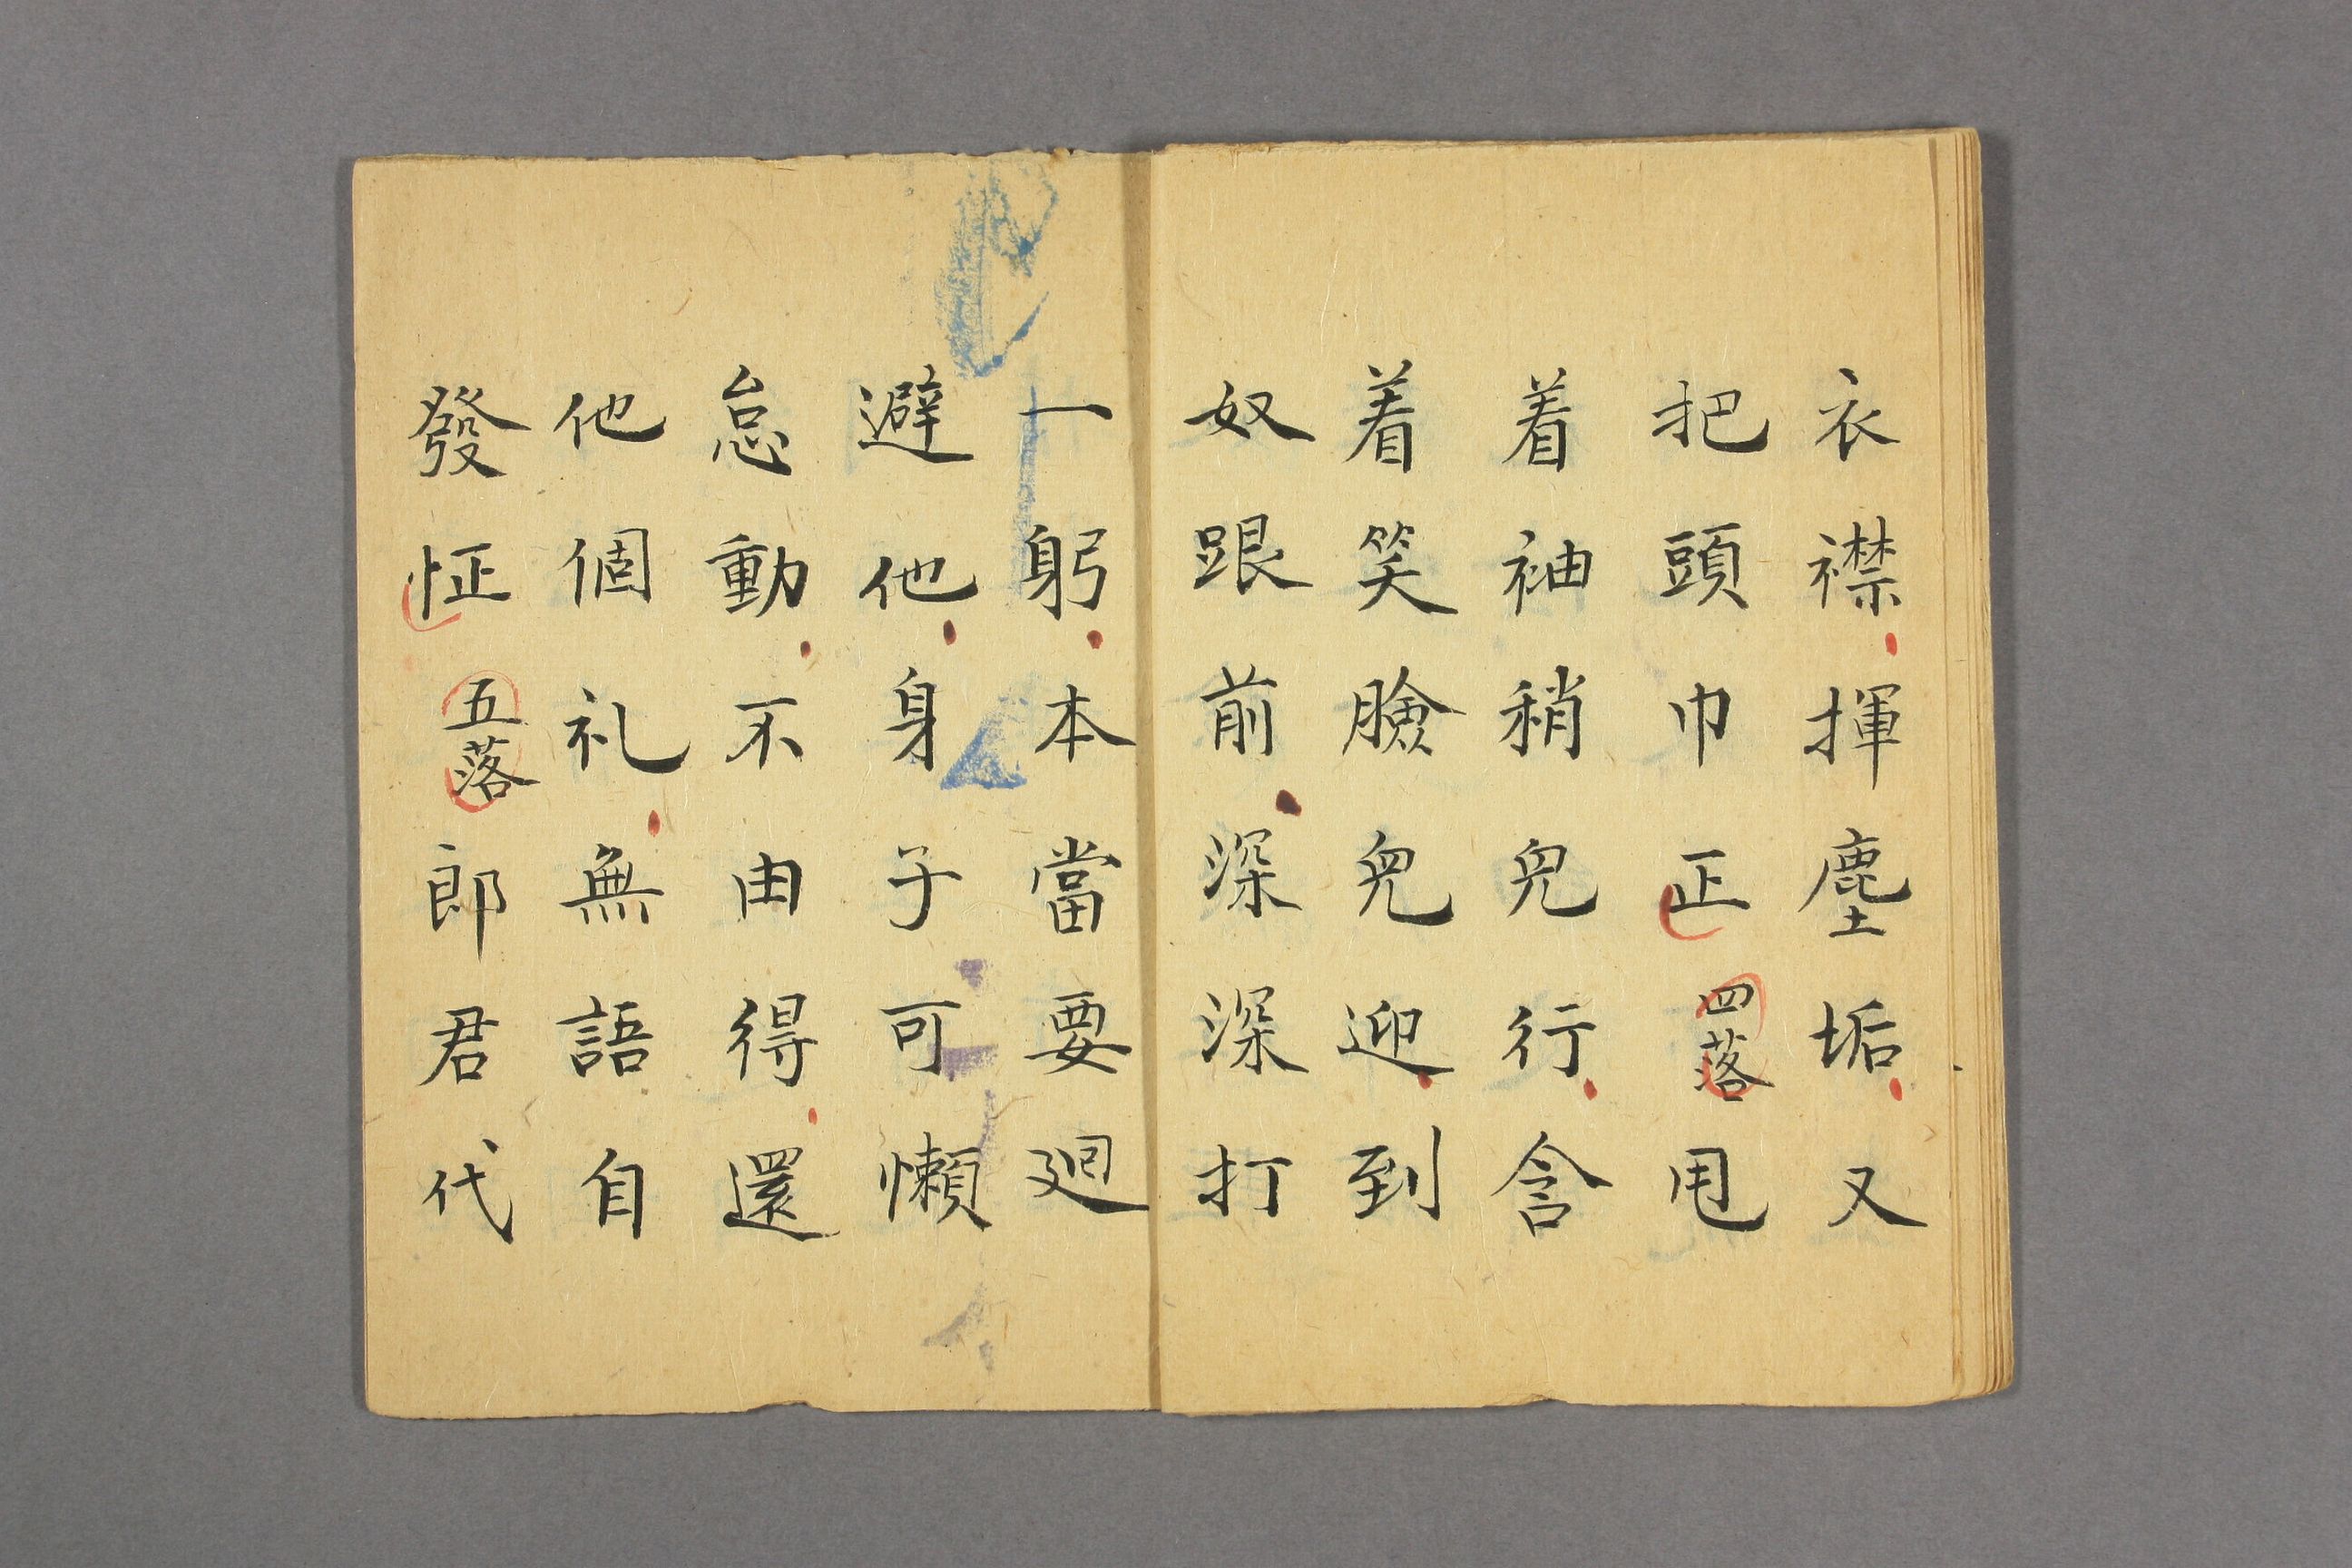 衣襟揮塵垢又
把頭巾正四落甩
着袖稍兒行含
着笑臉兒迎到
奴跟前深深打
一躬本當要廻
避他身子可懶
怠動不由得還
他個礼無語自
發怔五落郎君代